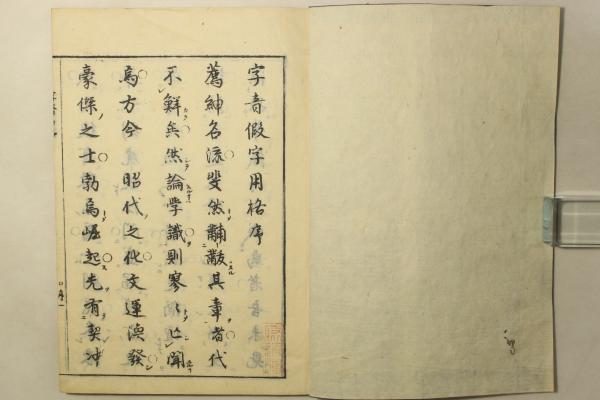 字音假字用格序
薦紳名流斐然黼黻其章者代
不鮮矣然論学識則寥〻亡聞
焉方今昭代之化文運渙發
豪傑之士勃焉崛起先有契冲